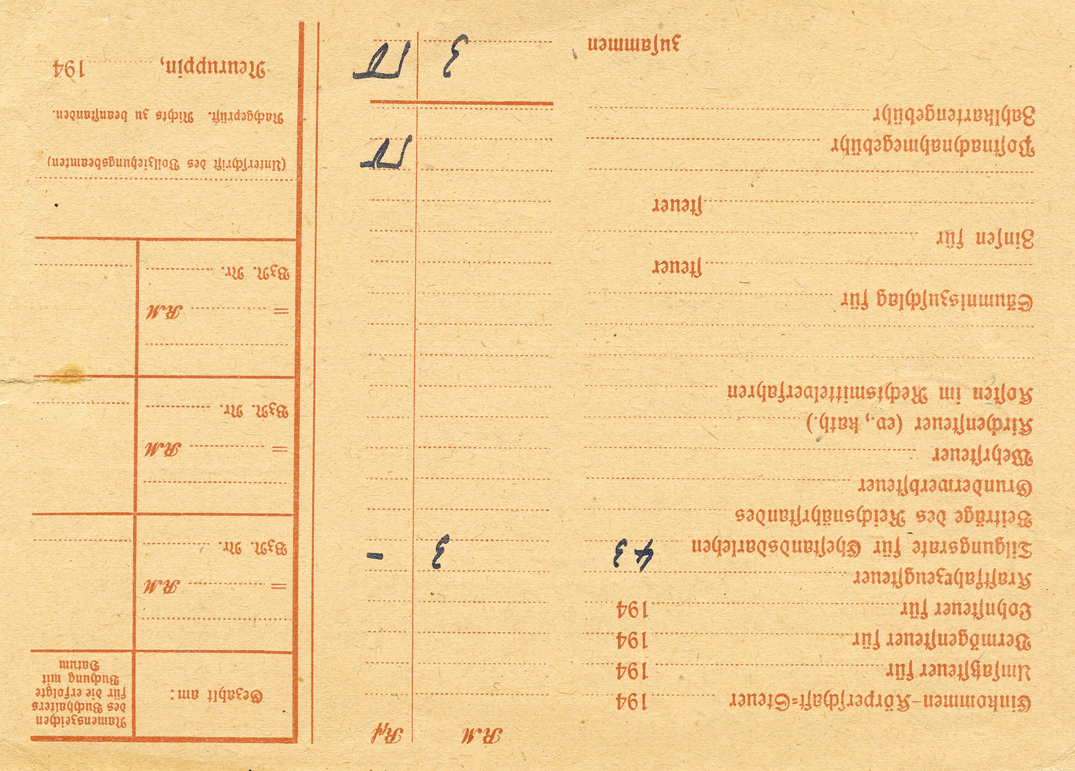 RM Rpf
Einkommen-Körperschaft-Steuer 194
Umsatzsteuer für 194
Vermögensteuer für 194
Lohnsteuer für 194
Kraftfahrzeugsteuer
Tilgungsrate für Ehestandsdarlehen 43 3 –
Beiträge des Reichsnährstandes
Grunderwerbsteuer
Wehrsteuer
Kirchensteuer (ev., kath.)
Kosten im Rechtsmittelverfahren
Säumniszuschlag für
steuer
Zinsen für
steuer
Postnachnahmegebühr
Zahlkartengebühr
zusammen 3
Gezahlt am:
Namenszeichen
des Buchhalters
für die erfolgte
Buchung mit
Datum
= RM
BzN. Nr.
= RM
BzN. Nr.
= RM
BzN. Nr.
(Unterschrift des Vollziehungsbeamten)
Nachgeprüft. Nichts zu beanstanden.
Neuruppin, 194